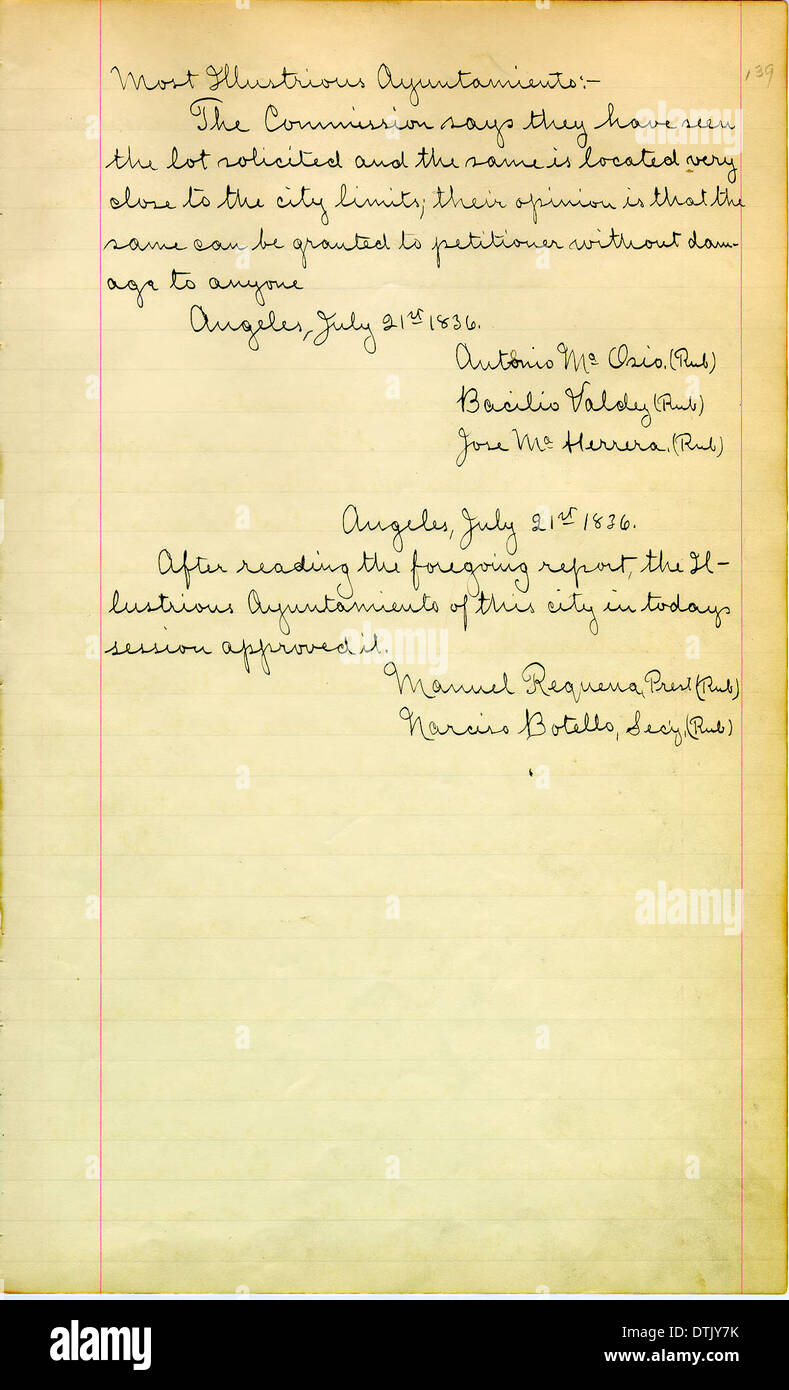 139
Most Illustrious Ayuntamiento:-
The Commission says they have seen
the lot solicited and the same is located very
close to the city limits; their opinion is that the
same can be granted to petitioner without dam-
age to anyone
Angeles, July 21st 1836.
Antonio Ma Osio. (Rub)
Bacilio Valdez (Rub)
Jose Ma Herrera. (Rub)
Angeles, July 21st 1836.
After reading the foregoing report, the Il-
lustrious Ayuntamiento of this city in todays
session approved it.
Manuel Requena, Prest (Rub)
Narciso Botello, Secy. (Rub)
alamy
alamy
alamy
alamy
Image ID: DTJY7K
www.alamy.com